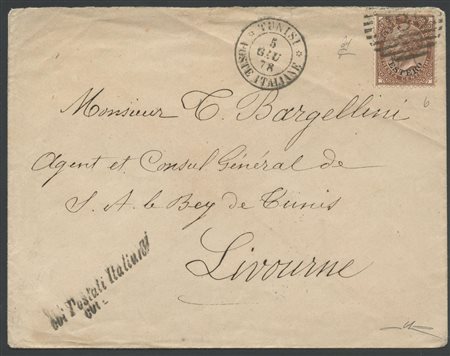 TUNISI
5
GIU
78
POSTE ITALIANE
ESTERO
Monsieur C. Bargellini
Agent et Consul Général de
S. A. le Bey de Tunis
Livourne
Postali Italiani
6